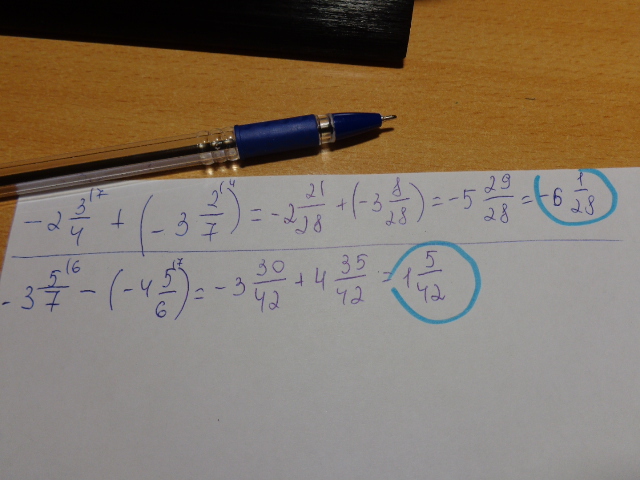 -2 3/4 (7 + (-3 2/7 (4) = -2 21/28 + (-3 8/28) = -5 29/28 = -6 1/28
-3 5/7 (6 - (-4 5/6 (7) = -3 30/42 + 4 35/42 = 1 5/42